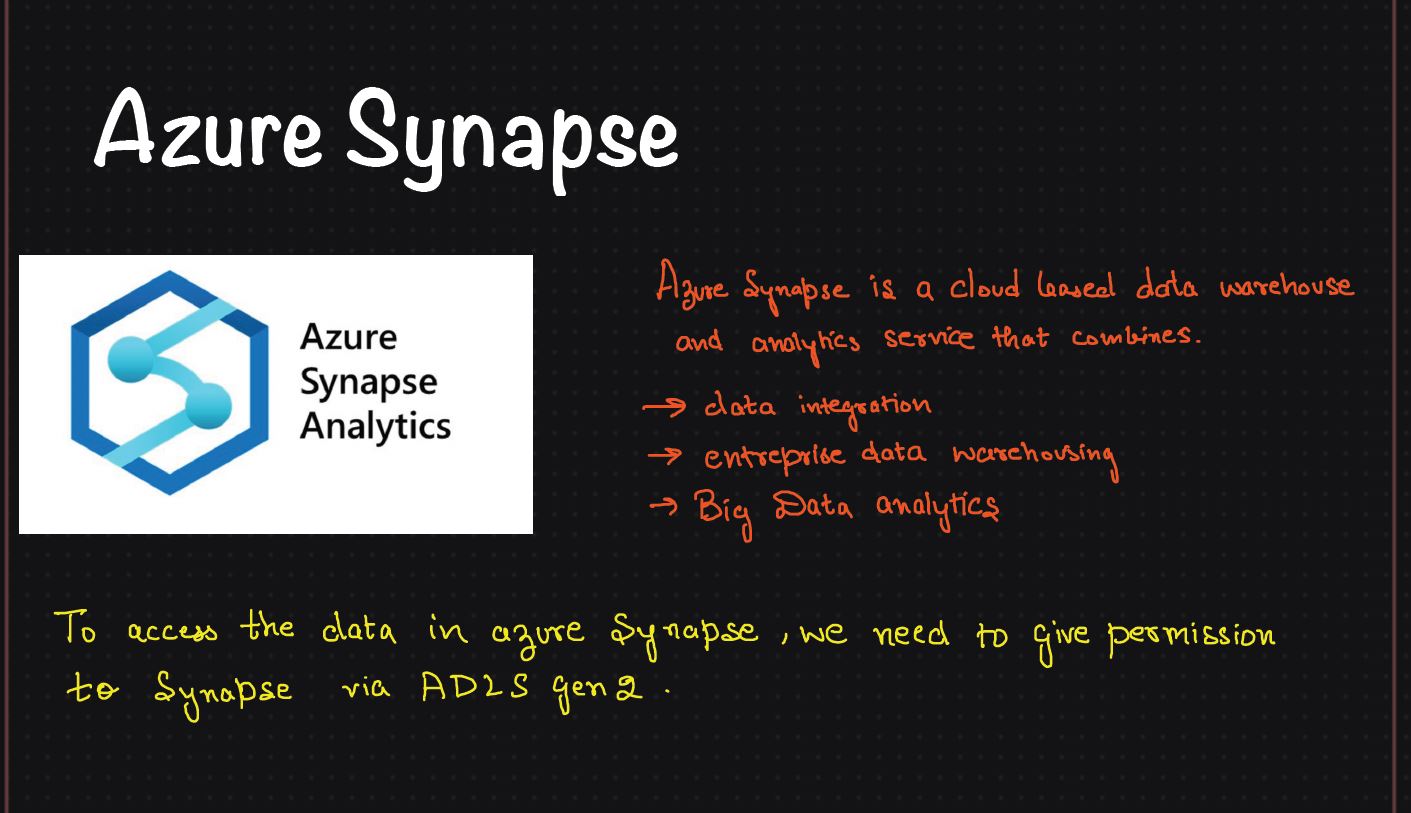 Azure Synapse
Azure
Synapse
Analytics
Azure Synapse is a cloud based data warehouse
and analytics service that combines.
→ data integration
→ entreprise data warehousing
→ Big Data analytics
To access the data in azure Synapse , we need to give permission
to Synapse via ADLS gen2 .